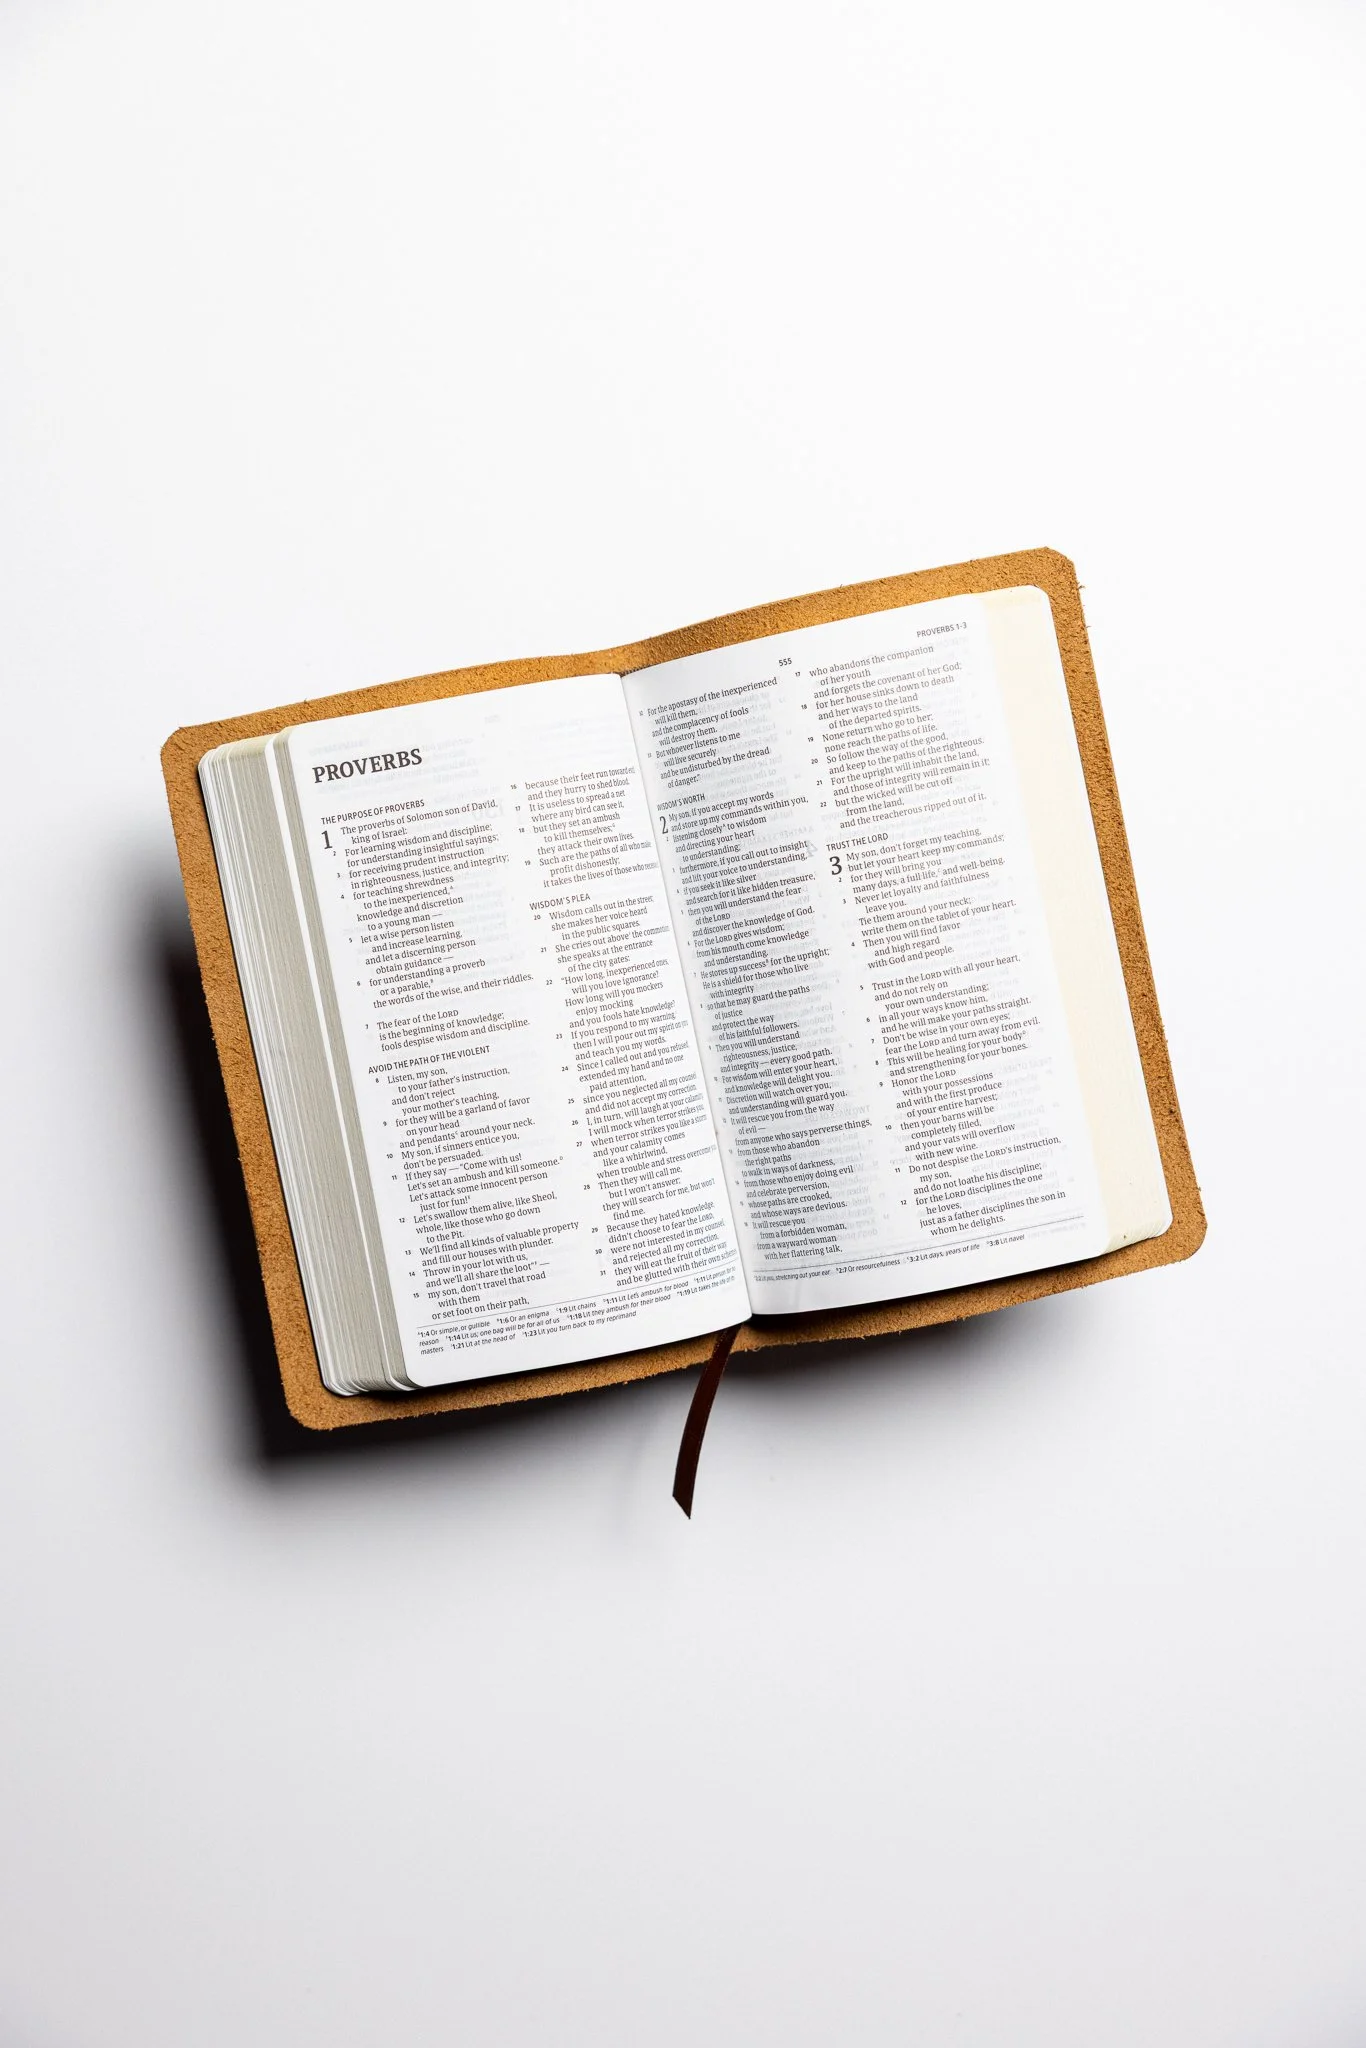 PROVERBS
THE PURPOSE OF PROVERBS
1 The proverbs of Solomon son of David,
king of Israel:
2 For learning wisdom and discipline;
for understanding insightful sayings;
3 for receiving prudent instruction
in righteousness, justice, and integrity;
4 for teaching shrewdness
to the inexperienced,ᴬ
knowledge and discretion
to a young man —
5 let a wise person listen
and increase learning,
and let a discerning person
obtain guidance —
6 for understanding a proverb
or a parable,ᴮ
the words of the wise, and their riddles.
7 The fear of the LORD
is the beginning of knowledge;
fools despise wisdom and discipline.
AVOID THE PATH OF THE VIOLENT
8 Listen, my son,
to your father's instruction,
and don't reject
your mother's teaching,
9 for they will be a garland of favor
on your head
and pendantsᶜ around your neck.
10 My son, if sinners entice you,
don't be persuaded.
11 If they say — "Come with us!
Let's set an ambush and kill someone.ᴰ
Let's attack some innocent person
just for fun!ᴱ
12 Let's swallow them alive, like Sheol,
whole, like those who go down
to the Pit.
13 We'll find all kinds of valuable property
and fill our houses with plunder.
14 Throw in your lot with us,
and we'll all share the loot"ᶠ —
15 my son, don't travel that road
with them
or set foot on their path,
16 because their feet run toward evil
and they hurry to shed blood.
17 It is useless to spread a net
where any bird can see it,
18 but they set an ambush
to kill themselves;ᴳ
they attack their own lives.
19 Such are the paths of all who make
profit dishonestly;
it takes the lives of those who receive
WISDOM'S PLEA
20 Wisdom calls out in the street;
she makes her voice heard
in the public squares.
21 She cries out aboveᴵ the commotion
she speaks at the entrance
of the city gates:
22 "How long, inexperienced ones,
will you love ignorance?
How long will you mockers
enjoy mocking
and you fools hate knowledge?
23 If you respond to my warning,
then I will pour out my spirit on you
and teach you my words.
24 Since I called out and you refused,
extended my hand and no one
paid attention,
25 since you neglected all my counsel
and did not accept my correction,
26 I, in turn, will laugh at your calamity.
I will mock when terror strikes you,
27 when terror strikes you like a storm
and your calamity comes
like a whirlwind,
when trouble and stress overcome
28 Then they will call me,
but I won't answer;
they will search for me, but won't
find me.
29 Because they hated knowledge,
didn't choose to fear the LORD,
30 were not interested in my counsel,
and rejected all my correction,
31 they will eat the fruit of their way
and be glutted with their own schemes
ᴬ1:4 Or simple, or gullible ᴮ1:6 Or an enigma ᶜ1:9 Lit chains ᴰ1:11 Lit Let's ambush for blood ᴱ1:11 Lit person for no
reason ᶠ1:14 Lit us; one bag will be for all of us ᴳ1:18 Lit they ambush for their blood ᴴ1:19 Lit takes the life of its
masters ᴵ1:21 Lit at the head of ᴶ1:23 Lit you turn back to my reprimand
555
PROVERBS 1-3
32 For the apostasy of the inexperienced
will kill them,
and the complacency of fools
will destroy them.
33 But whoever listens to me
will live securely
and be undisturbed by the dread
of danger."
WISDOM'S WORTH
2 My son, if you accept my words
and store up my commands within you,
2 listening closelyᴬ to wisdom
and directing your heart
to understanding;
3 furthermore, if you call out to insight
and lift your voice to understanding,
4 if you seek it like silver
and search for it like hidden treasure,
5 then you will understand the fear
of the LORD
and discover the knowledge of God.
6 For the LORD gives wisdom;
from his mouth come knowledge
and understanding.
7 He stores up successᴮ for the upright;
He is a shield for those who live
with integrity
8 so that he may guard the paths
of justice
and protect the way
of his faithful followers.
9 Then you will understand
righteousness, justice,
and integrity — every good path.
10 For wisdom will enter your heart,
and knowledge will delight you.
11 Discretion will watch over you,
and understanding will guard you.
12 It will rescue you from the way
of evil —
from anyone who says perverse things,
13 from those who abandon
the right paths
to walk in ways of darkness,
14 from those who enjoy doing evil
and celebrate perversion,
15 whose paths are crooked,
and whose ways are devious.
16 It will rescue you
from a forbidden woman,
from a wayward woman
with her flattering talk,
17 who abandons the companion
of her youth
and forgets the covenant of her God;
18 for her house sinks down to death
and her ways to the land
of the departed spirits.
19 None return who go to her;
none reach the paths of life.
20 So follow the way of the good,
and keep to the paths of the righteous.
21 For the upright will inhabit the land,
and those of integrity will remain in it;
22 but the wicked will be cut off
from the land,
and the treacherous ripped out of it.
TRUST THE LORD
3 My son, don't forget my teaching,
but let your heart keep my commands;
2 for they will bring you
many days, a full life,ᶜ and well-being.
3 Never let loyalty and faithfulness
leave you.
Tie them around your neck;
write them on the tablet of your heart.
4 Then you will find favor
and high regard
with God and people.
5 Trust in the LORD with all your heart,
and do not rely on
your own understanding;
6 in all your ways know him,
and he will make your paths straight.
7 Don't be wise in your own eyes;
fear the LORD and turn away from evil.
8 This will be healing for your bodyᴰ
and strengthening for your bones.
9 Honor the LORD
with your possessions
and with the first produce
of your entire harvest;
10 then your barns will be
completely filled,
and your vats will overflow
with new wine.
11 Do not despise the LORD's instruction,
my son,
and do not loathe his discipline;
12 for the LORD disciplines the one
he loves,
just as a father disciplines the son in
whom he delights.
ᴬ2:2 Lit you, stretching out your ear ᴮ2:7 Or resourcefulness ᶜ3:2 Lit days, years of life ᴰ3:8 Lit navel